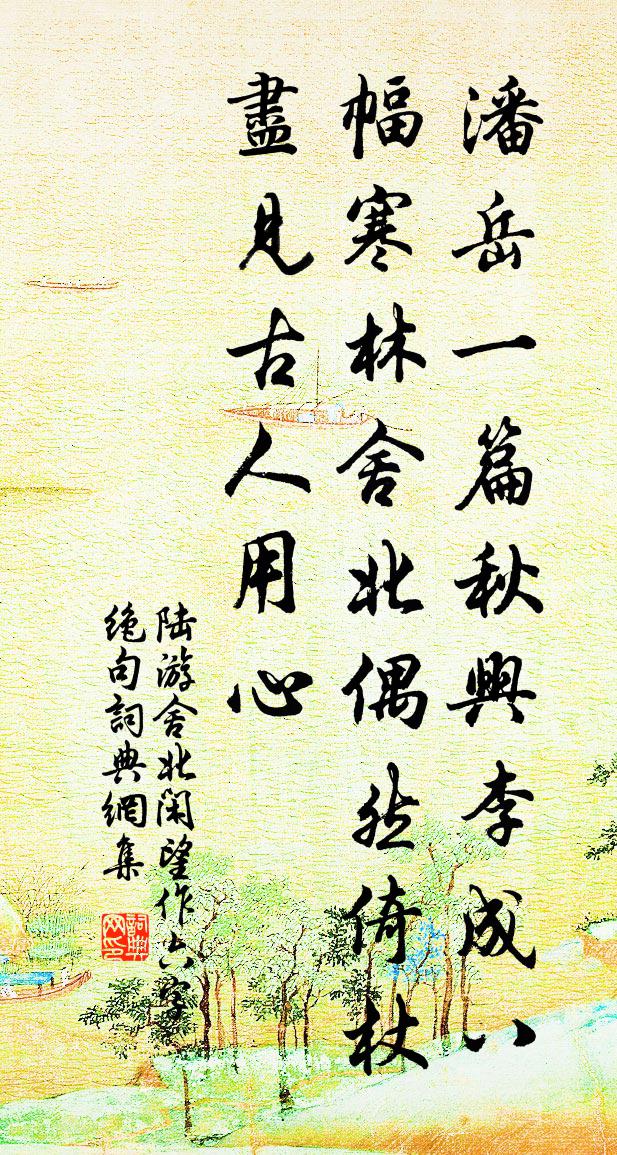 潘岳一篇秋興李成八
幅寒林舍北偶然倚杖
盡見古人用心
陸游舍北閑望作六字
絶句詞典網集
詞典网印